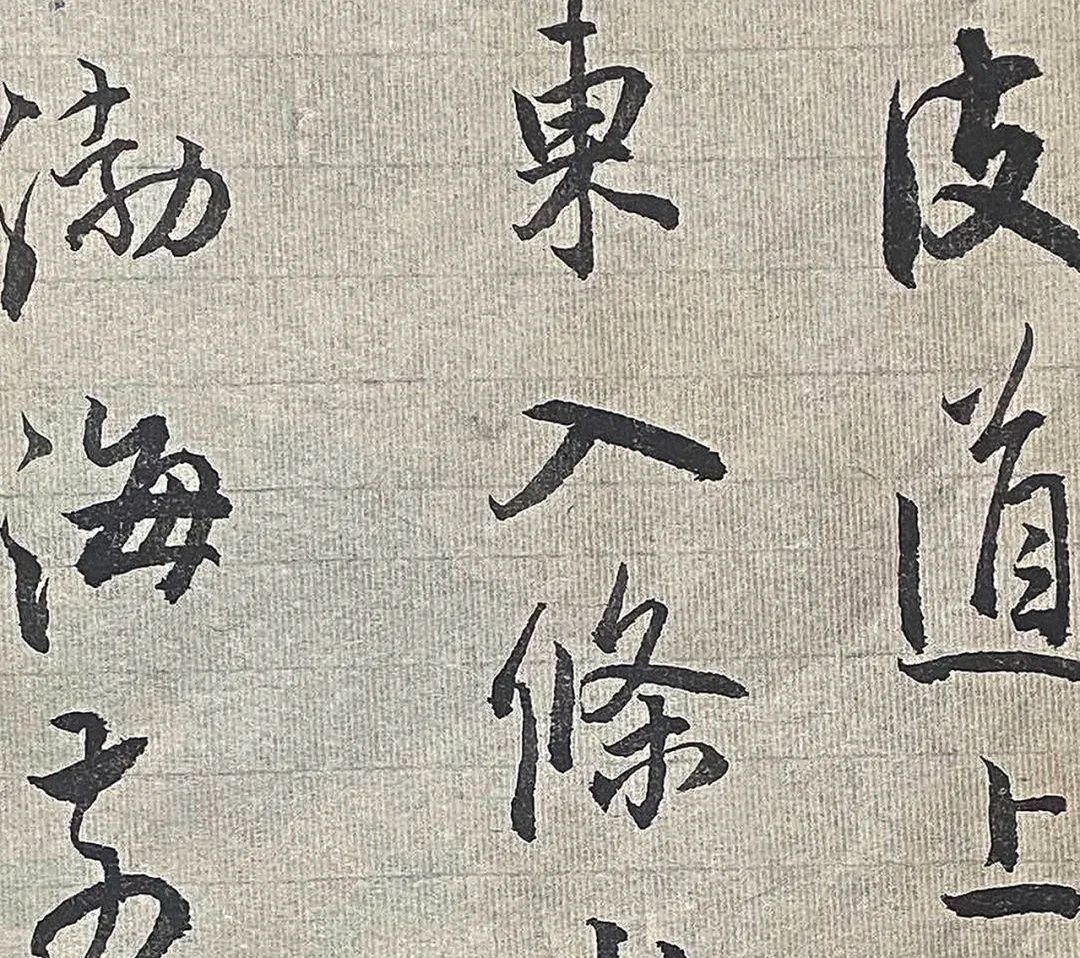 皮道上
東入條
渤海